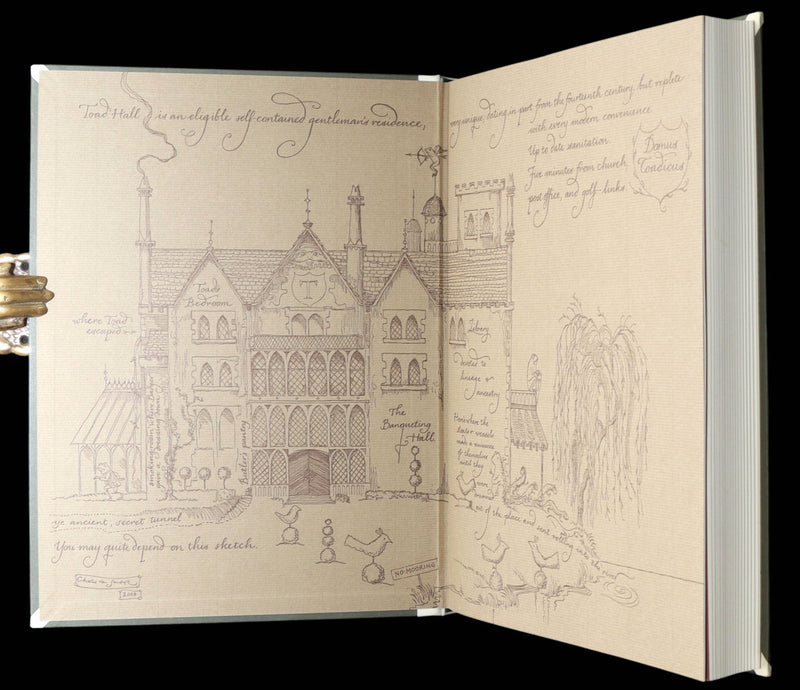 Toad Hall is an eligible self-contained gentleman's residence,
very unique, dating in part from the fourteenth century, but replete
with every modern convenience
Up to date sanitation.
Five minutes from church,
post office, and golf-links.
Domus
Toadicus
Toad's
Bedroom
T
where Toad
escaped
Library
devoted to
lineage &
ancestry
The
Banqueting
Hall
Butler's pantry
smoking room where Badger
gave a dressing down
Here when the
stoats weasels
made a nuisance
of themselves
until they
were
out of the place and sent into the river
ye ancient, secret tunnel
You may quite depend on this sketch.
NO MOORING
2008